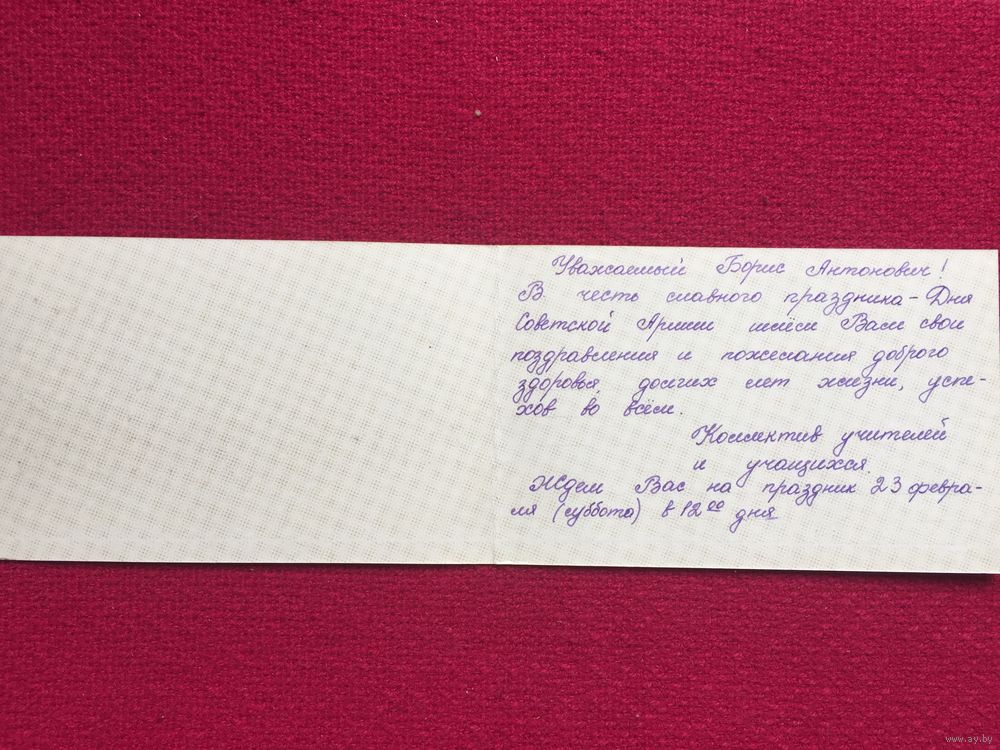 Уважаемый Борис Антонович!
В честь славного праздника – Дня
Советской Армии шлём Вам свои
поздравления и пожелания доброго
здоровья, долгих лет жизни, успе-
хов во всём.
Коллектив учителей
и учащихся.
Ждем Вас на праздник 23 февра-
ля (суббота) в 12 00 дня
www.ay.by